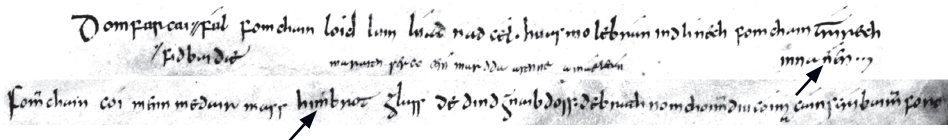 Domfarcai fál fomchain loid luin luad nad cél. huas mo lebrán indlinech fomchain trírech
fidbaidæ innanén...
fom̄chain coi menn medair mass himbrot glass de dind gnaib doss. debrath nomchoim̄diu coima cain scribaim̄ foro